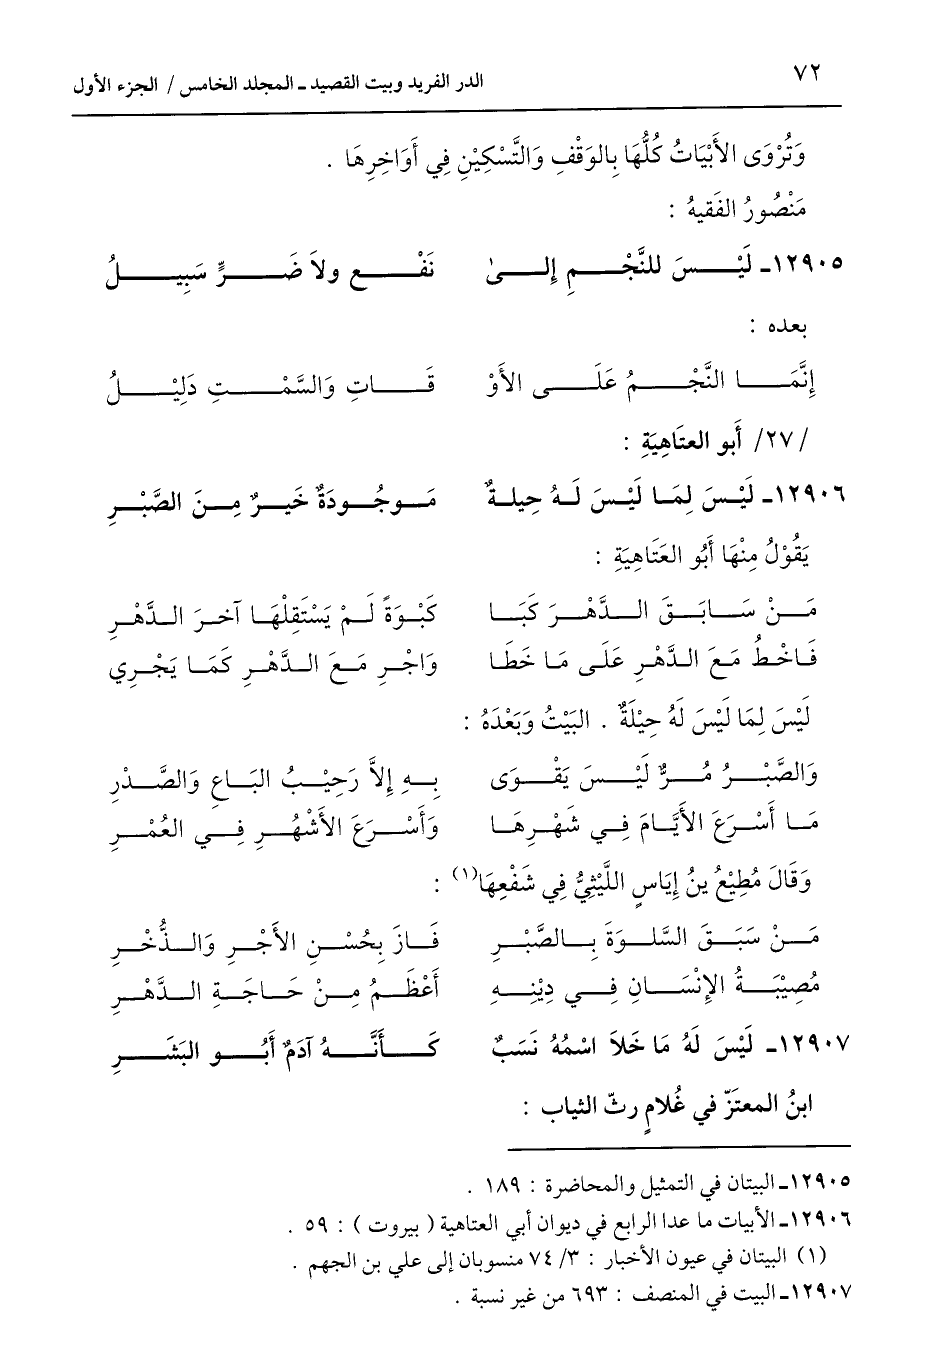 ٧٢
الدر الفريد وبيت القصيد ـ المجلد الخامس / الجزء الأول
وَتُرْوَى الأَبْيَاتُ كُلُّهَا بِالوَقْفِ وَالتَّسْكِيْنِ فِي أَوَاخِرِهَا .
مَنْصُورُ الفَقيهُ :
١٢٩٠٥ـ لَيْسَ للنَّجْمِ إِلىٰ نَفْعٍ ولاَ ضَرٍّ سَبِيلُ
بعده :
إِنَّمَا النَّجْمُ عَلَى الأَوْ قَاتِ وَالسَّمْتِ دَلِيْلُ
/٢٧/ أَبو العتَاهِيَةِ :
١٢٩٠٦ـ لَيْسَ لِمَا لَيْسَ لَهُ حِيلةٌ مَوجُودَةٌ خَيرٌ مِنَ الصَّبْرِ
يَقُوْلُ مِنْهَا أَبُو العَتَاهِيَةِ :
مَنْ سَابَقَ الدَّهْرَ كَبَا كَبْوَةً لَمْ يَسْتَقِلْهَا آخرَ الدَّهْرِ
فَاخْطُ مَعَ الدَّهْرِ عَلَى مَا خَطَا وَاجْرِ مَعَ الدَّهْرِ كَمَا يَجْرِي
لَيْسَ لِمَا لَيْسَ لَهُ حِيْلَةٌ . البَيْتُ وَبَعْدَهُ :
وَالصَّبْرُ مُرٌّ لَيْسَ يَقْوَى بِهِ إِلاَّ رَحِيْبُ البَاعِ وَالصَّدْرِ
مَا أَسْرَعَ الأَيَّامَ فِي شَهْرِهَا وَأَسْرَعَ الأَشْهُرِ فِي العُمْرِ
وَقَالَ مُطِيْعُ بنُ إِيَاسٍ اللَّيْثِيُّ فِي شَفْعِهَا(١) :
مَنْ سَبَقَ السَّلوَةَ بِالصَّبْرِ فَازَ بِحُسْنِ الأَجْرِ وَالذُّخْرِ
مُصِيْبَةُ الإِنْسَانِ فِي دِيْنِهِ أَعْظَمُ مِنْ حَاجَةِ الدَّهْرِ
١٢٩٠٧ـ لَيْسَ لَهُ مَا خَلاَ اسْمُهُ نَسَبٌ كَأَنَّهُ آدَمٌ أَبُو البَشَرِ
ابنُ المعتَزّ في غُلامٍ رثّ الثياب :
١٢٩٠٥ـ البيتان في التمثيل والمحاضرة : ١٨٩ .
١٢٩٠٦ـ الأبيات ما عدا الرابع في ديوان أبي العتاهية ( بيروت ) : ٥٩ .
(١) البيتان في عيون الأخبار : ٣/ ٧٤ منسوبان إلى علي بن الجهم .
١٢٩٠٧ـ البيت في المنصف : ٦٩٣ من غير نسبة .